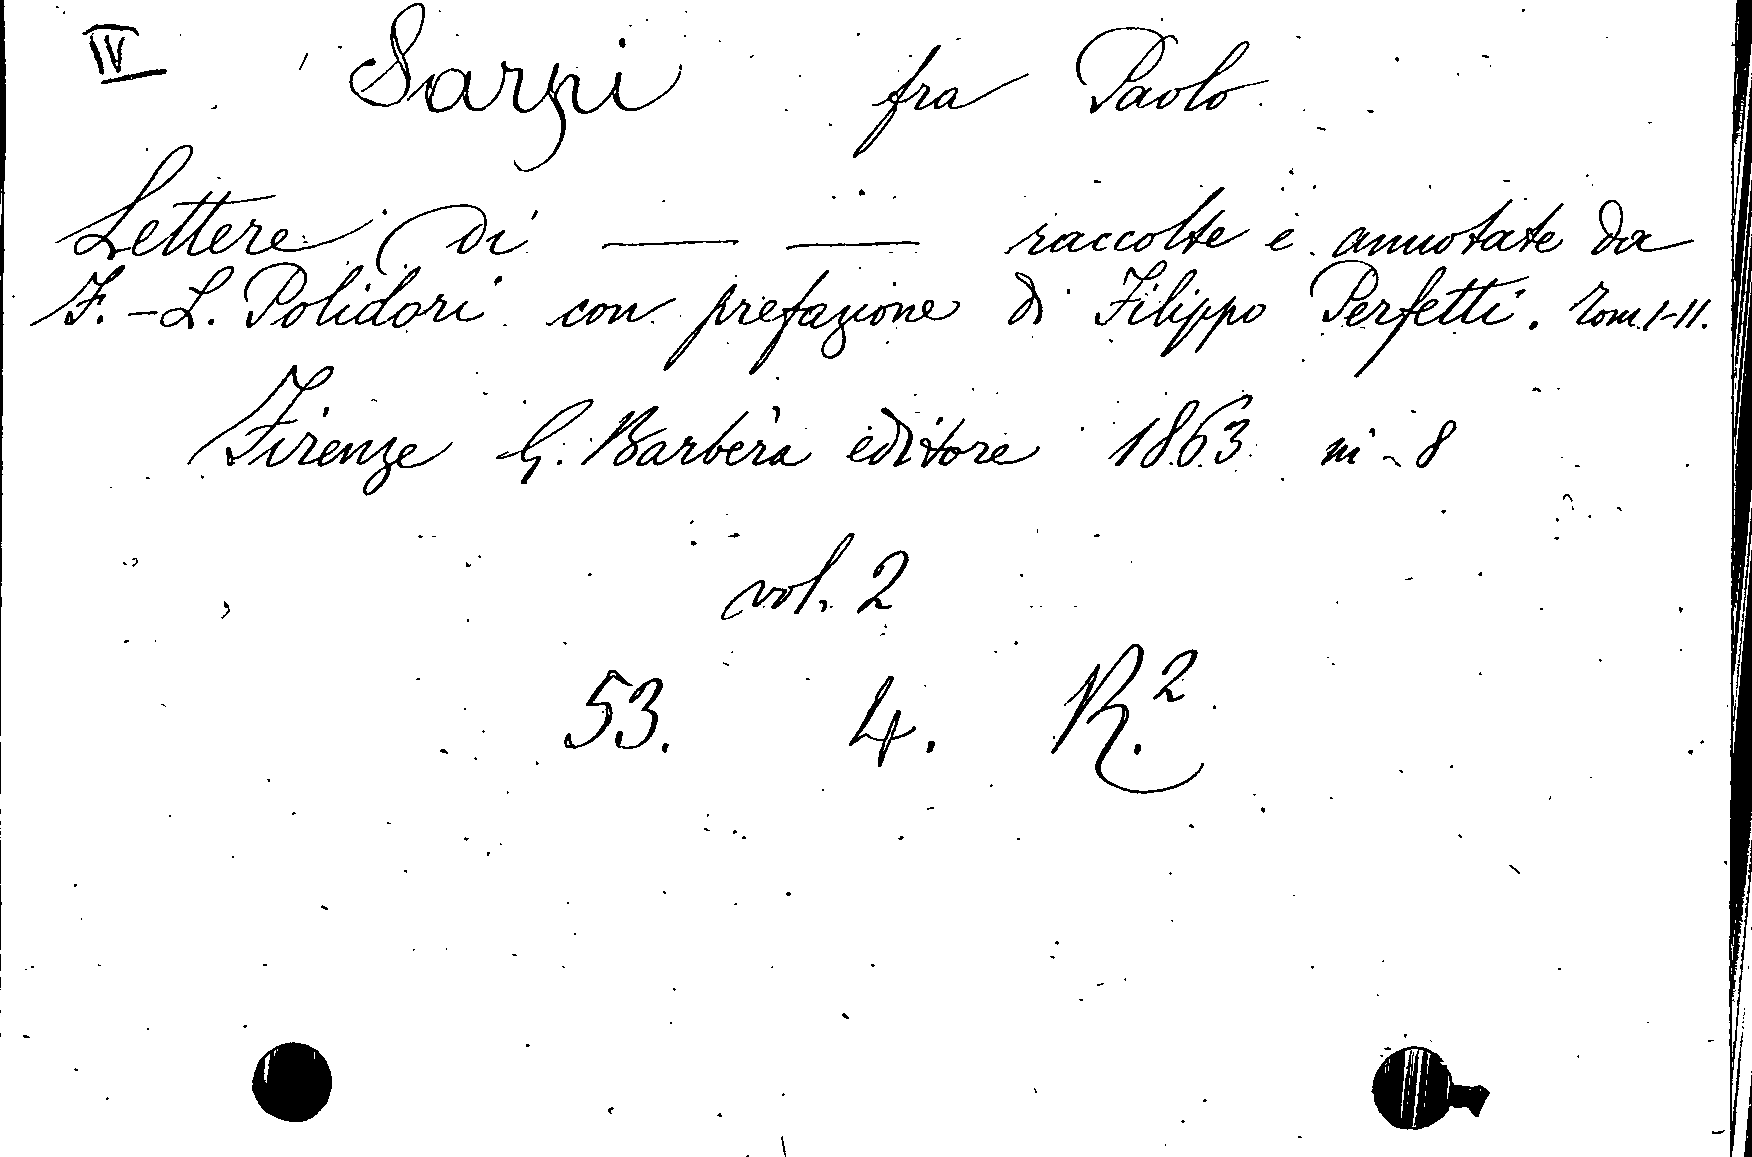 IV Sarpi fra Paolo
Lettere di — — raccolte e annotate da
F.-L. Polidori con prefazione di Filippo Perfetti. Tom. I-II.
Firenze G. Barbèra editore 1863 in-8
vol. 2
53. 4. R.²